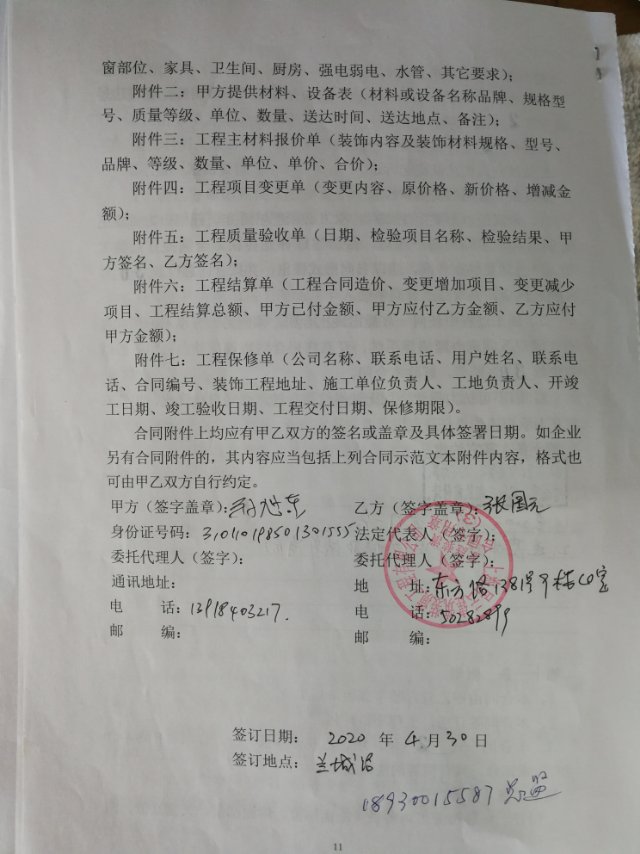 窗部位、家具、卫生间、厨房、强电弱电、水管、其它要求);
附件二：甲方提供材料、设备表（材料或设备名称品牌、规格型
号、质量等级、单位、数量、送达时间、送达地点、备注）；
附件三：工程主材料报价单（装饰内容及装饰材料规格、型号、
品牌、等级、数量、单位、单价、合价）；
附件四：工程项目变更单（变更内容、原价格、新价格、增减金
额）；
附件五：工程质量验收单（日期、检验项目名称、检验结果、甲
方签名、乙方签名）；
附件六：工程结算单（工程合同造价、变更增加项目、变更减少
项目、工程结算总额、甲方已付金额、甲方应付乙方金额、乙方应付
甲方金额）；
附件七：工程保修单（公司名称、联系电话、用户姓名、联系电
话、合同编号、装饰工程地址、施工单位负责人、工地负责人、开竣
工日期、竣工验收日期、工程交付日期、保修期限）。
合同附件上均应有甲乙双方的签名或盖章及具体签署日期。如企业
另有合同附件的，其内容应当包括上列合同示范文本附件内容，格式也
可由甲乙双方自行约定。
甲方（签字盖章）： 乙方（签字盖章）：张国元
身份证号码：310110198501301555 法定代表人（签字）：
委托代理人（签字）： 委托代理人（签字）：
通讯地址： 地 址：东方路1381号
电 话：13918403217. 电 话：50282899
邮 编： 邮 编：
签订日期： 2020 年 4 月 30 日
签订地点：兰城路
18930015587
11